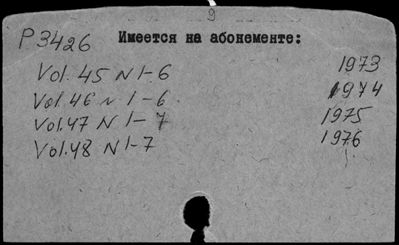 9
P3426 Имеется на абонементе:
Vol. 45 N 1-6 1973
Vol. 46 N 1-6 1974
Vol. 47 N 1-7 1975
Vol. 48 N 1-7 1976